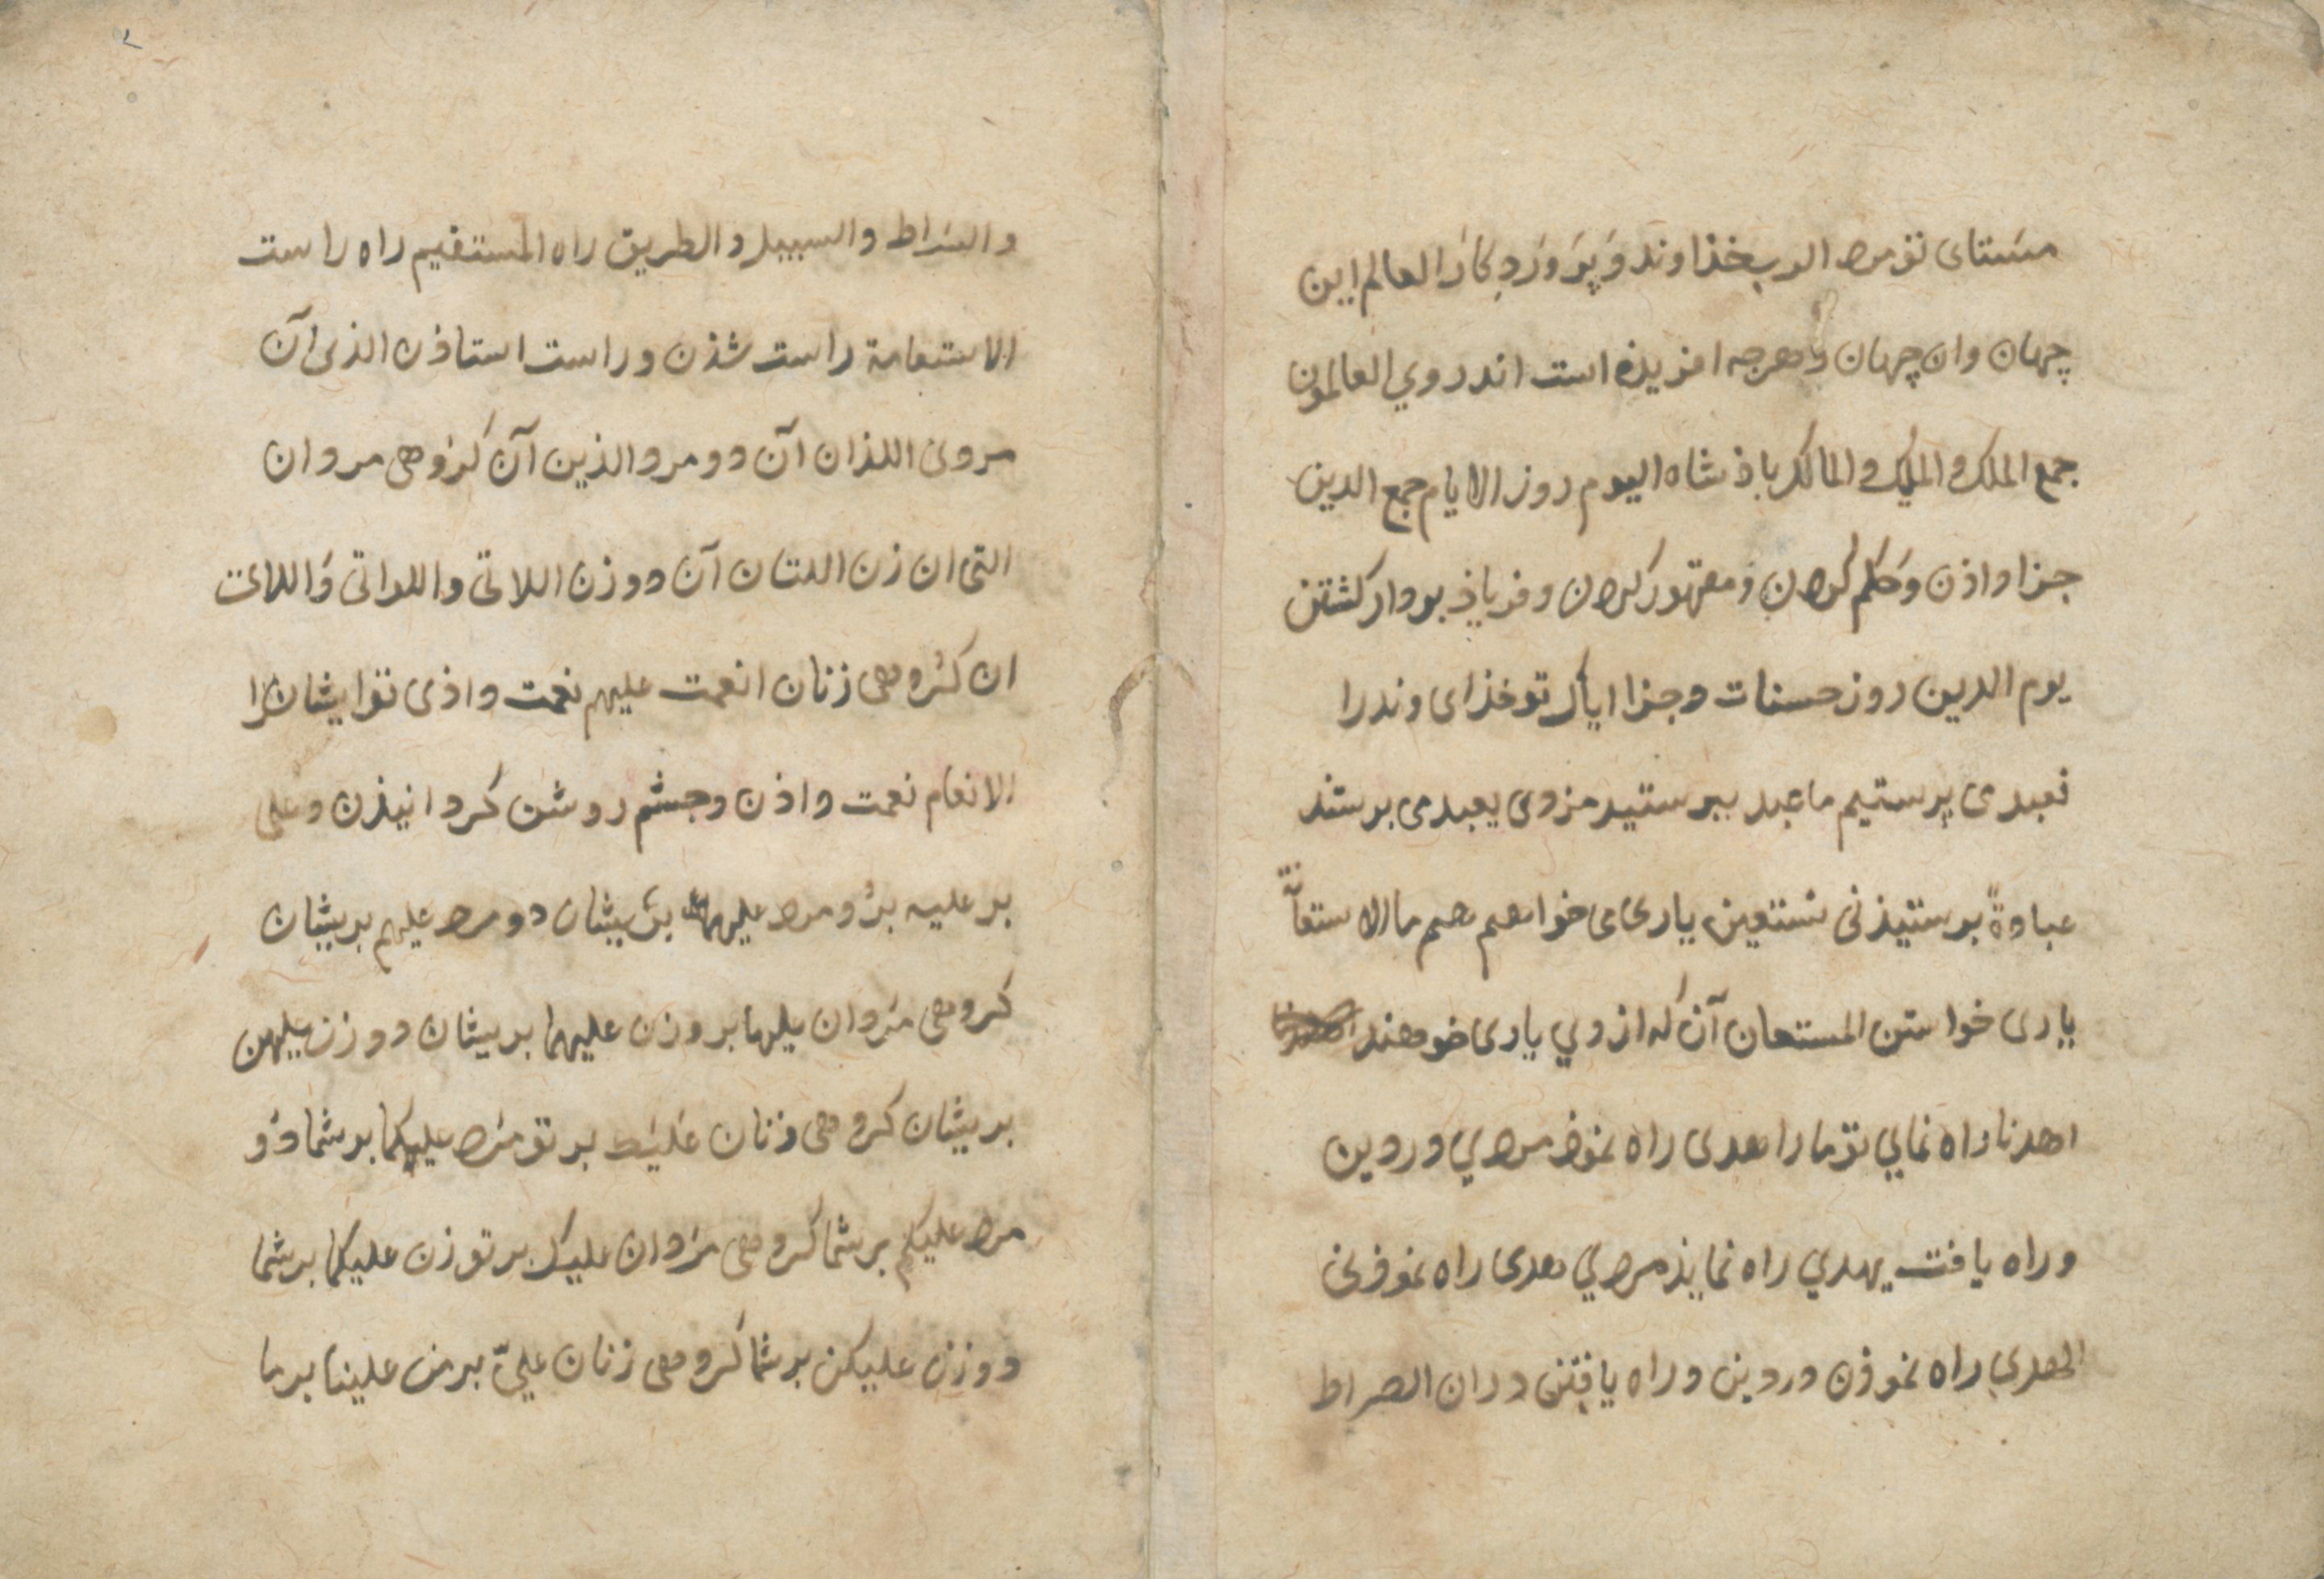 مستای تو مرد الرب خذاوند و پروردکار العالم این
جهان وان جهان و هرجه افریده است اندروی العالمون
جمع الملک والملیک والمالک باذشاه الیوم روز الایام جمع الدین
جزا داذن وحکم کردن و مقهور کردن وفریاذ بردار کشتن
یوم الدین روز حسنات وجزا ایاک تو خذای وندرا
نعبد می پرستیم ما عبد ببرستید مردی یعبد می برستند
عبادةً برستیذنی نستعین یاری می خواهیم هم ما الاستعانة
یاری خواستن المستعان آن که از وی یاری خوهند
اهدنا راه نمای تو ما را هدی راه نموذ مردی ور دین
وراه یافت یهدی راه نمایذ مردی هدی راه نموذنی
الهدی راه نموذن ور دین وراه یافتن دران الصراط
والسراط والسبیل والطریق راه المستقیم راه راست
الاستقامة راست شذن وراست استاذن الذی آن
مردی اللذان آن دو مرد الذین آن کروهی مردان
التی ان زن اللتان آن دو زن اللاتی واللواتی واللائی
ان کروهی زنان انعمت علیهم نعمت داذی تو ایشان را
الانعام نعمت داذن وجشم روشن کردانیذن وعلی
بر علیه برو مرد علیهما بریشان دو مرد علیهم بریشان
کروهی مردان علیها برو زن علیهما بریشان دو زن علیهن
بریشان کروهی زنان علیک بر تو مرد علیکما بر شما دو
مرد علیکم بر شما کروهی مردان علیک بر تو زن علیکما بر شما
دو زن علیکن بر شما کروهی زنان علیّ بر من علینا بر ما